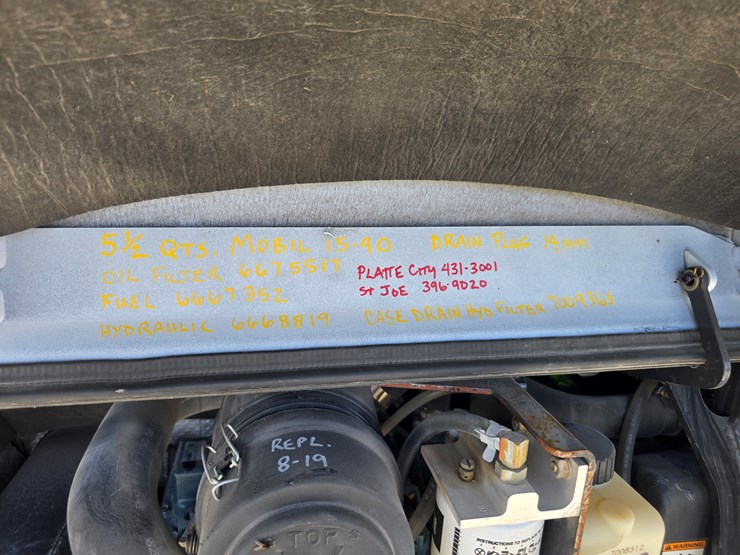 5½ QTS. MOBIL 15-40 DRAIN PLUG 19mm
OIL FILTER 6675517
FUEL 6667352
HYDRAULIC 6668819
PLATTE CITY 431-3001
ST JOE 396-9020
CASE DRAIN HYD FILTER 7009365
REPL.
8-19
TOP
INSTRUCTIONS TO
7008312
WARNING